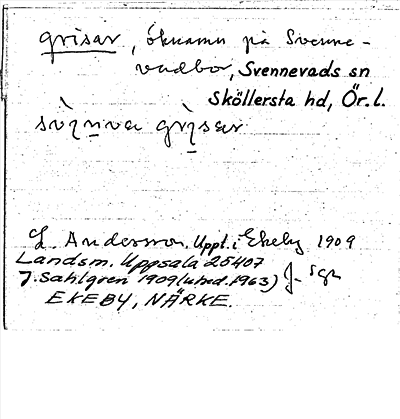 grisar, öknamn på Svenne-
vadbor, Svennevads sn
Sköllersta hd, Ör. l.
svìnva grìsar
L. Andersson. Uppt. i Ekeby 1909
Landsm. Uppsala 25407
J. Sahlgren 1909 (utred. 1963) J. Sgn
EKEBY, NÄRKE.